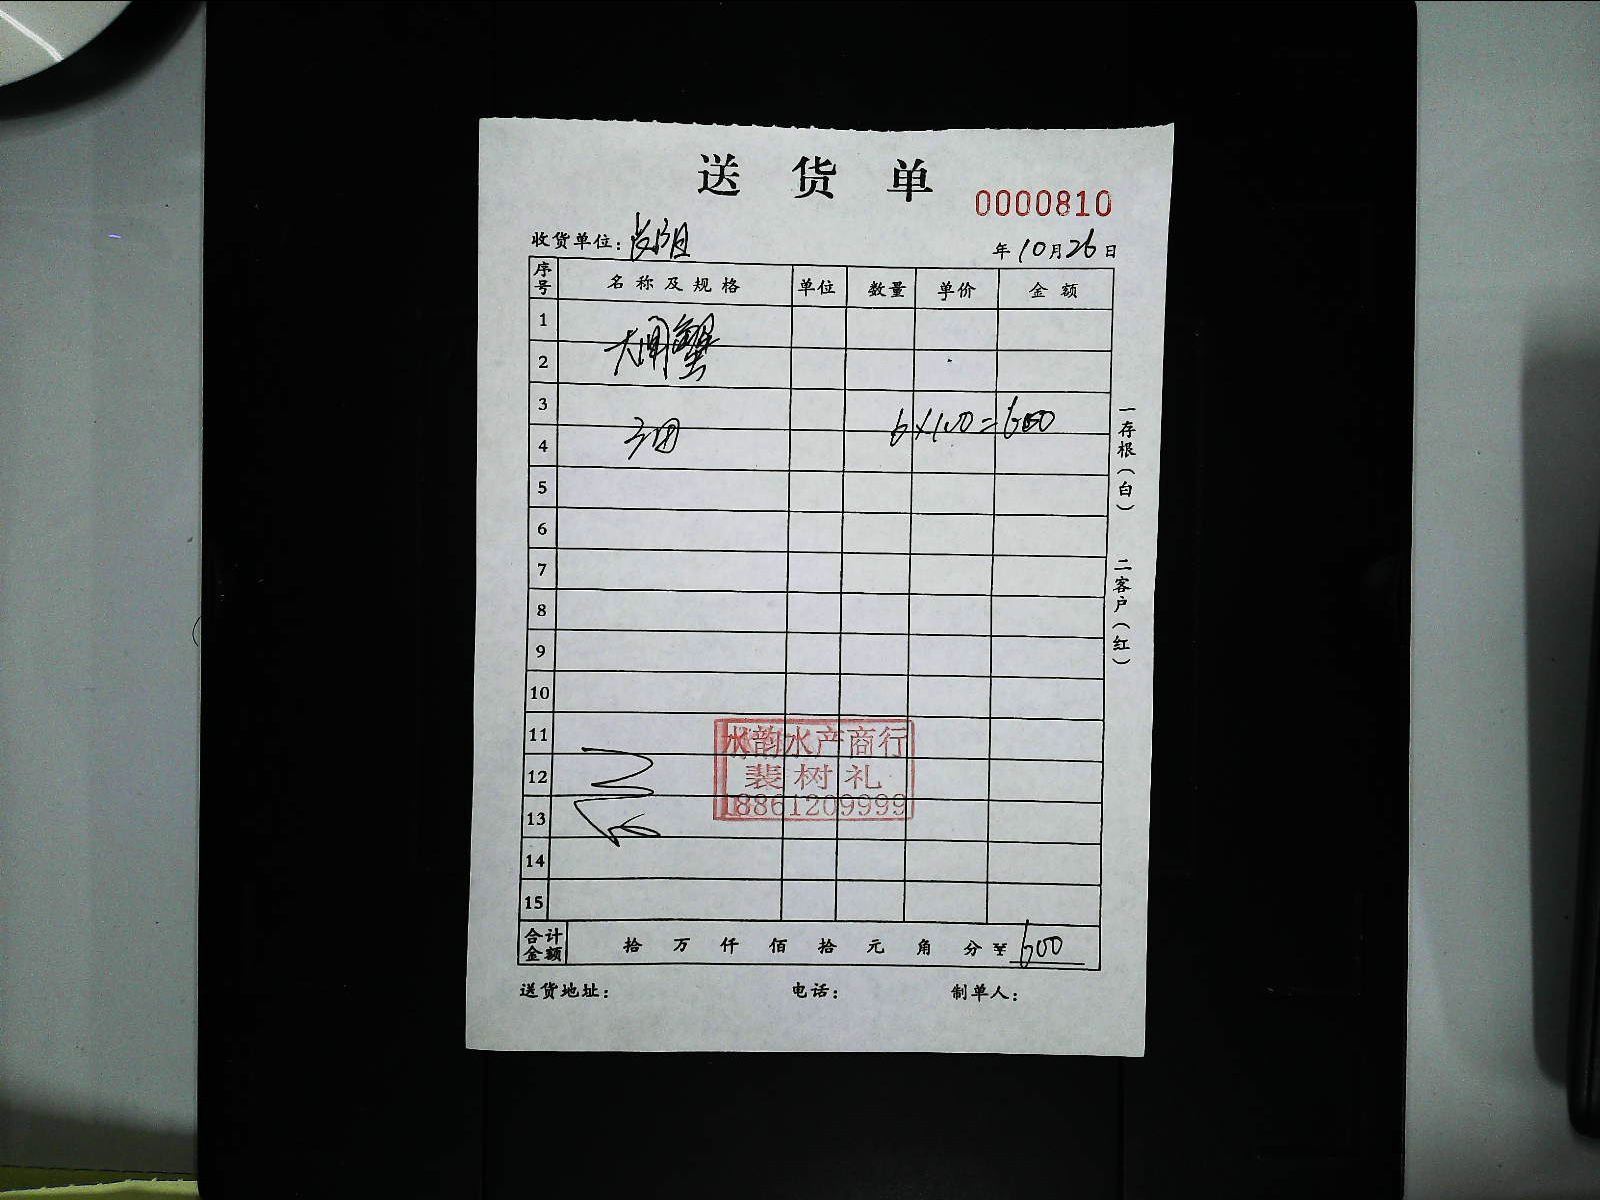 送货单
0000810
收货单位：
年10月26日
序号 名称及规格 单位 数量 单价 金额
1
大闸蟹
2
3
6×100=600
4
5
6
7
8
9
10
11
12
13
14
15
水韵水产商行
裴树礼
18861209999
合计金额 拾 万 仟 佰 拾 元 角 分 ¥600
送货地址： 电话： 制单人：
一存根（白） 二客户（红）